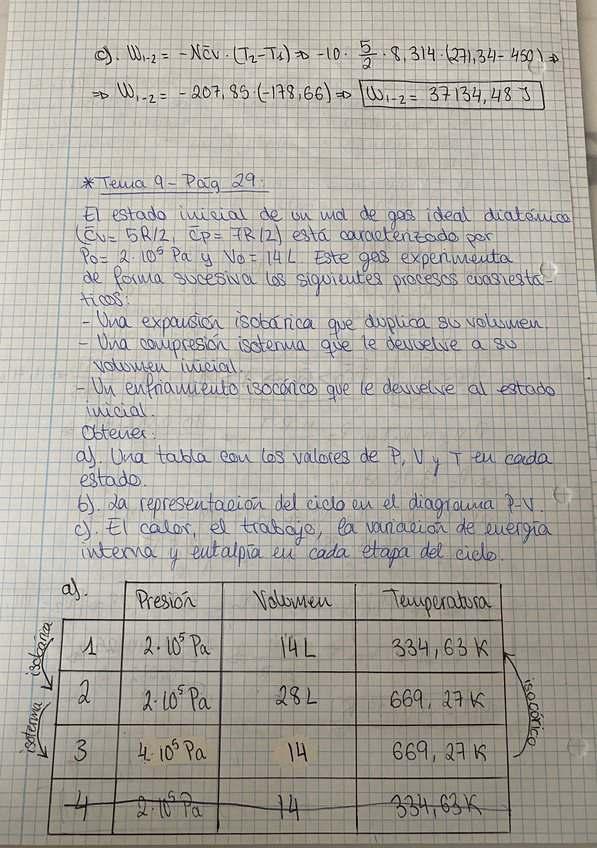 c). W₁₋₂ = -Nc̄v · (T₂-T₁) ⇒ -10 · 5/2 · 8,314 · (271,34 - 450) ⇒
⇒ W₁₋₂ = -207,85 · (-178,66) ⇒ W₁₋₂ = 37134,48 J
* Tema 9 - Pág 29:
El estado inicial de un mol de gas ideal diatómico
(C̄v = 5R/2, C̄p = 7R/2) está caracterizado por
P₀ = 2·10⁵ Pa y V₀ = 14 L. Este gas experimenta
de forma sucesiva los siguientes procesos cuasiestá-
ticos:
- Una expansión isobárica que duplica su volumen.
- Una compresión isoterma que le devuelve a su
volumen inicial.
- Un enfriamiento isocórico que le devuelve al estado
inicial.
Obtener:
a). Una tabla con los valores de P, V y T en cada
estado.
b). La representación del ciclo en el diagrama P-V.
c). El calor, el trabajo, la variación de energía
interna y entalpía en cada etapa del ciclo.
a).
Presión Volumen Temperatura
1 2·10⁵ Pa 14 L 334,63 K
2 2·10⁵ Pa 28 L 669,27 K
3 4·10⁵ Pa 14 669,27 K
4 2·10⁵ Pa 14 334,63 K
isobária
isoterma
isocórico